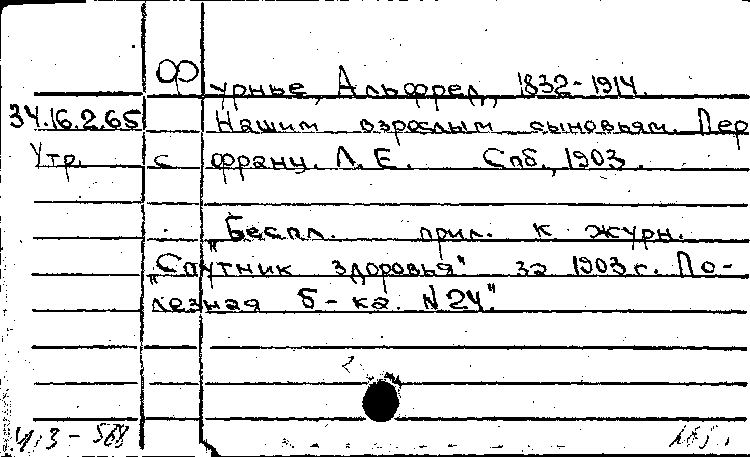 Фурнье, Альфред, 1832-1914.
34.16.2.65 Нашим взрослым сыновьям. Пер
Утр. с франц. Л. Е. Спб., 1903.
„Беспл. прил. к журн.
„Спутник здоровья" за 1903 г. По-
лезная б-ка. N 24".
413-568